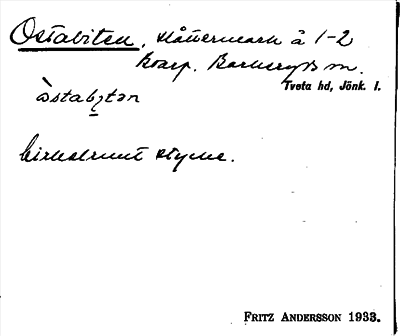 Ostabiten, slåttermark å 1-2
Boarp. Barkeryds sn.
Tveta hd, Jönk. l.
òstabi̯tən
Cirkelrunt stycke.
FRITZ ANDERSSON 1933.